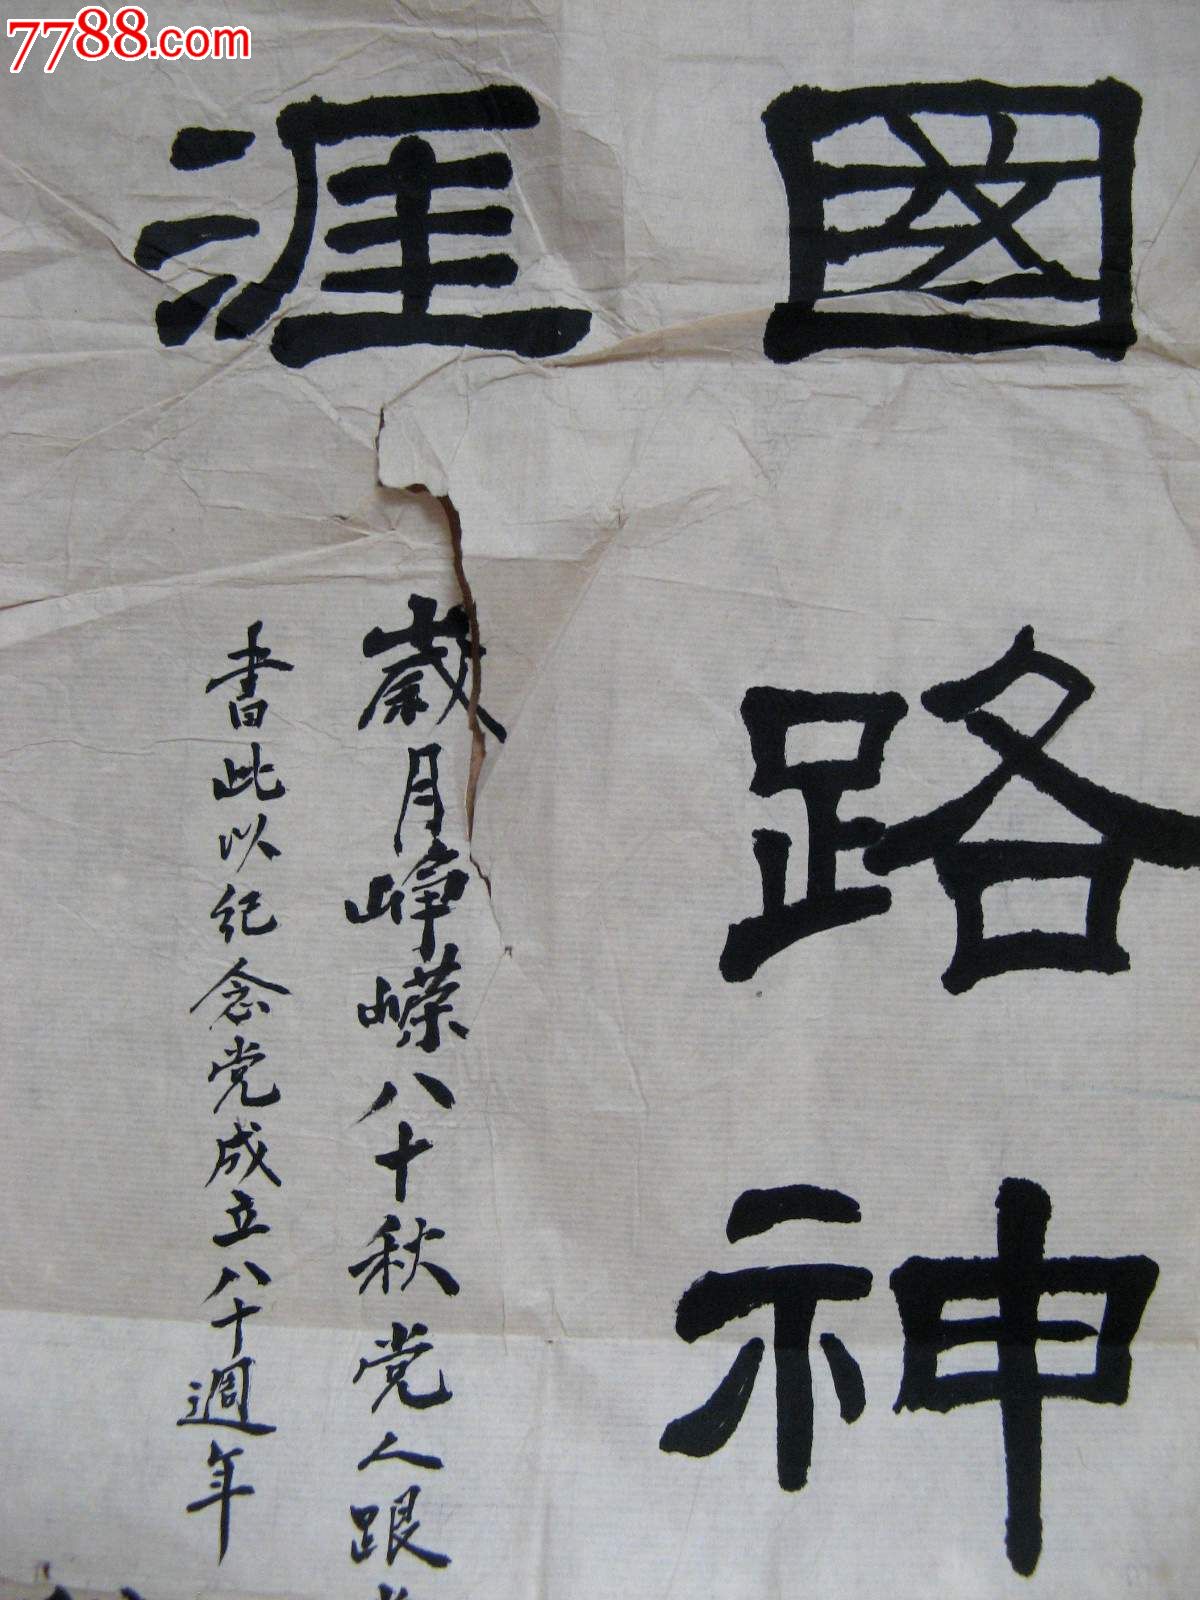 7788.com
國路神
涯
歲月峥嶸八十秋党人跟
書此以纪念党成立八十週年